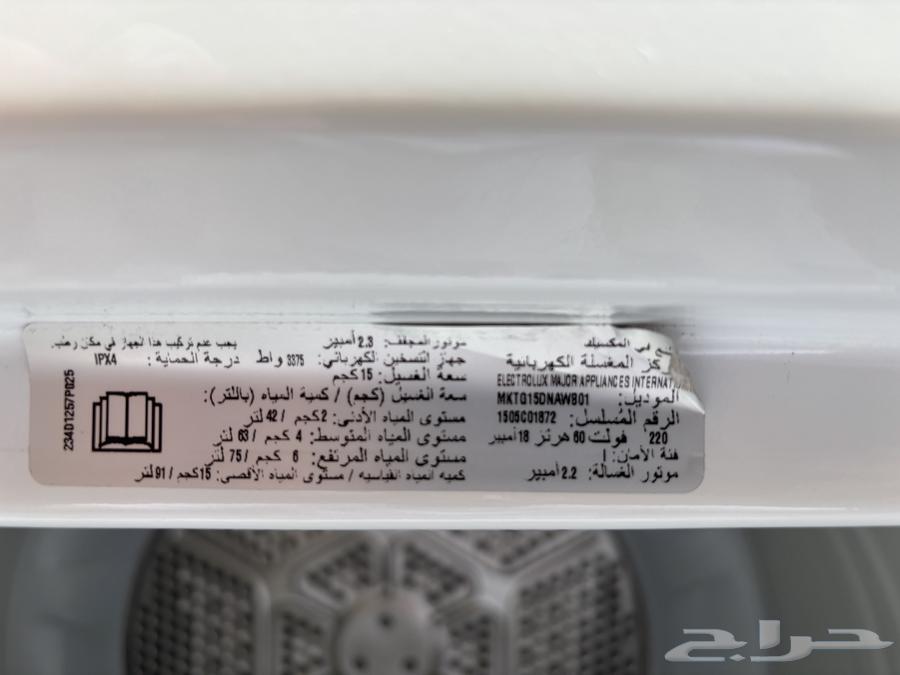 في المكسيك
المغسلة الكهربائية
ELECTROLUX MAJOR APPLIANCES
الموديل: MKTG15DNAWB01
الرقم المُسلسل: 1505C01872
220 فولت 60 هرتز 18 أمبير
فئة الأمان: I
موتور الغسالة: 2.2 أمبير
موتور المجفف: 2.3 أمبير
جهاز التسخين الكهربائي: 3375 واط
سعة الغسيل: 15 كجم
سعة الغسيل (كجم) / كمية المياه (باللتر):
مستوى المياه الأدنى: 2 كجم / 42 لتر
مستوى المياه المتوسط: 4 كجم / 63 لتر
مستوى المياه المرتفع: 6 كجم / 75 لتر
كمية المياه القياسية / مستوى المياه الأقصى: 15 كجم / 91 لتر
يجب عدم تركيب هذا الجهاز في مكان رطب.
درجة الحماية: IPX4
23401257P025
حراج